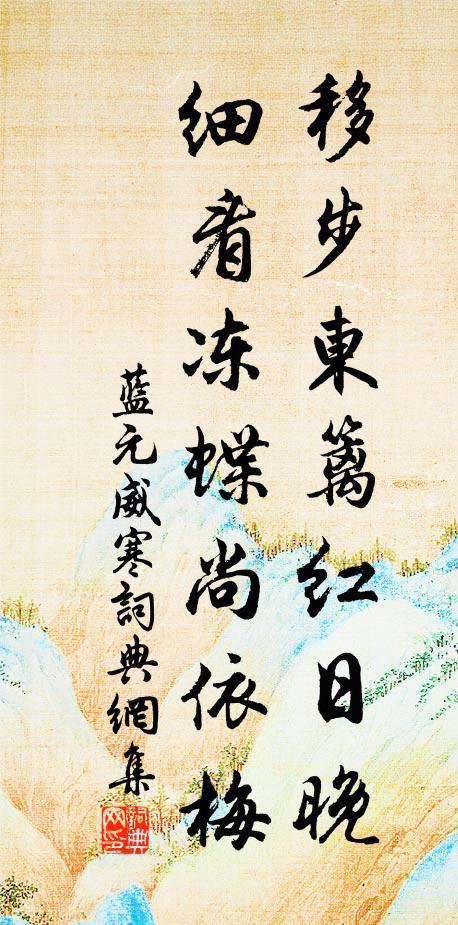 移步東籬紅日晚
细看冻蝶尚依梅
藍元威寒詞典網集
詞典
网印